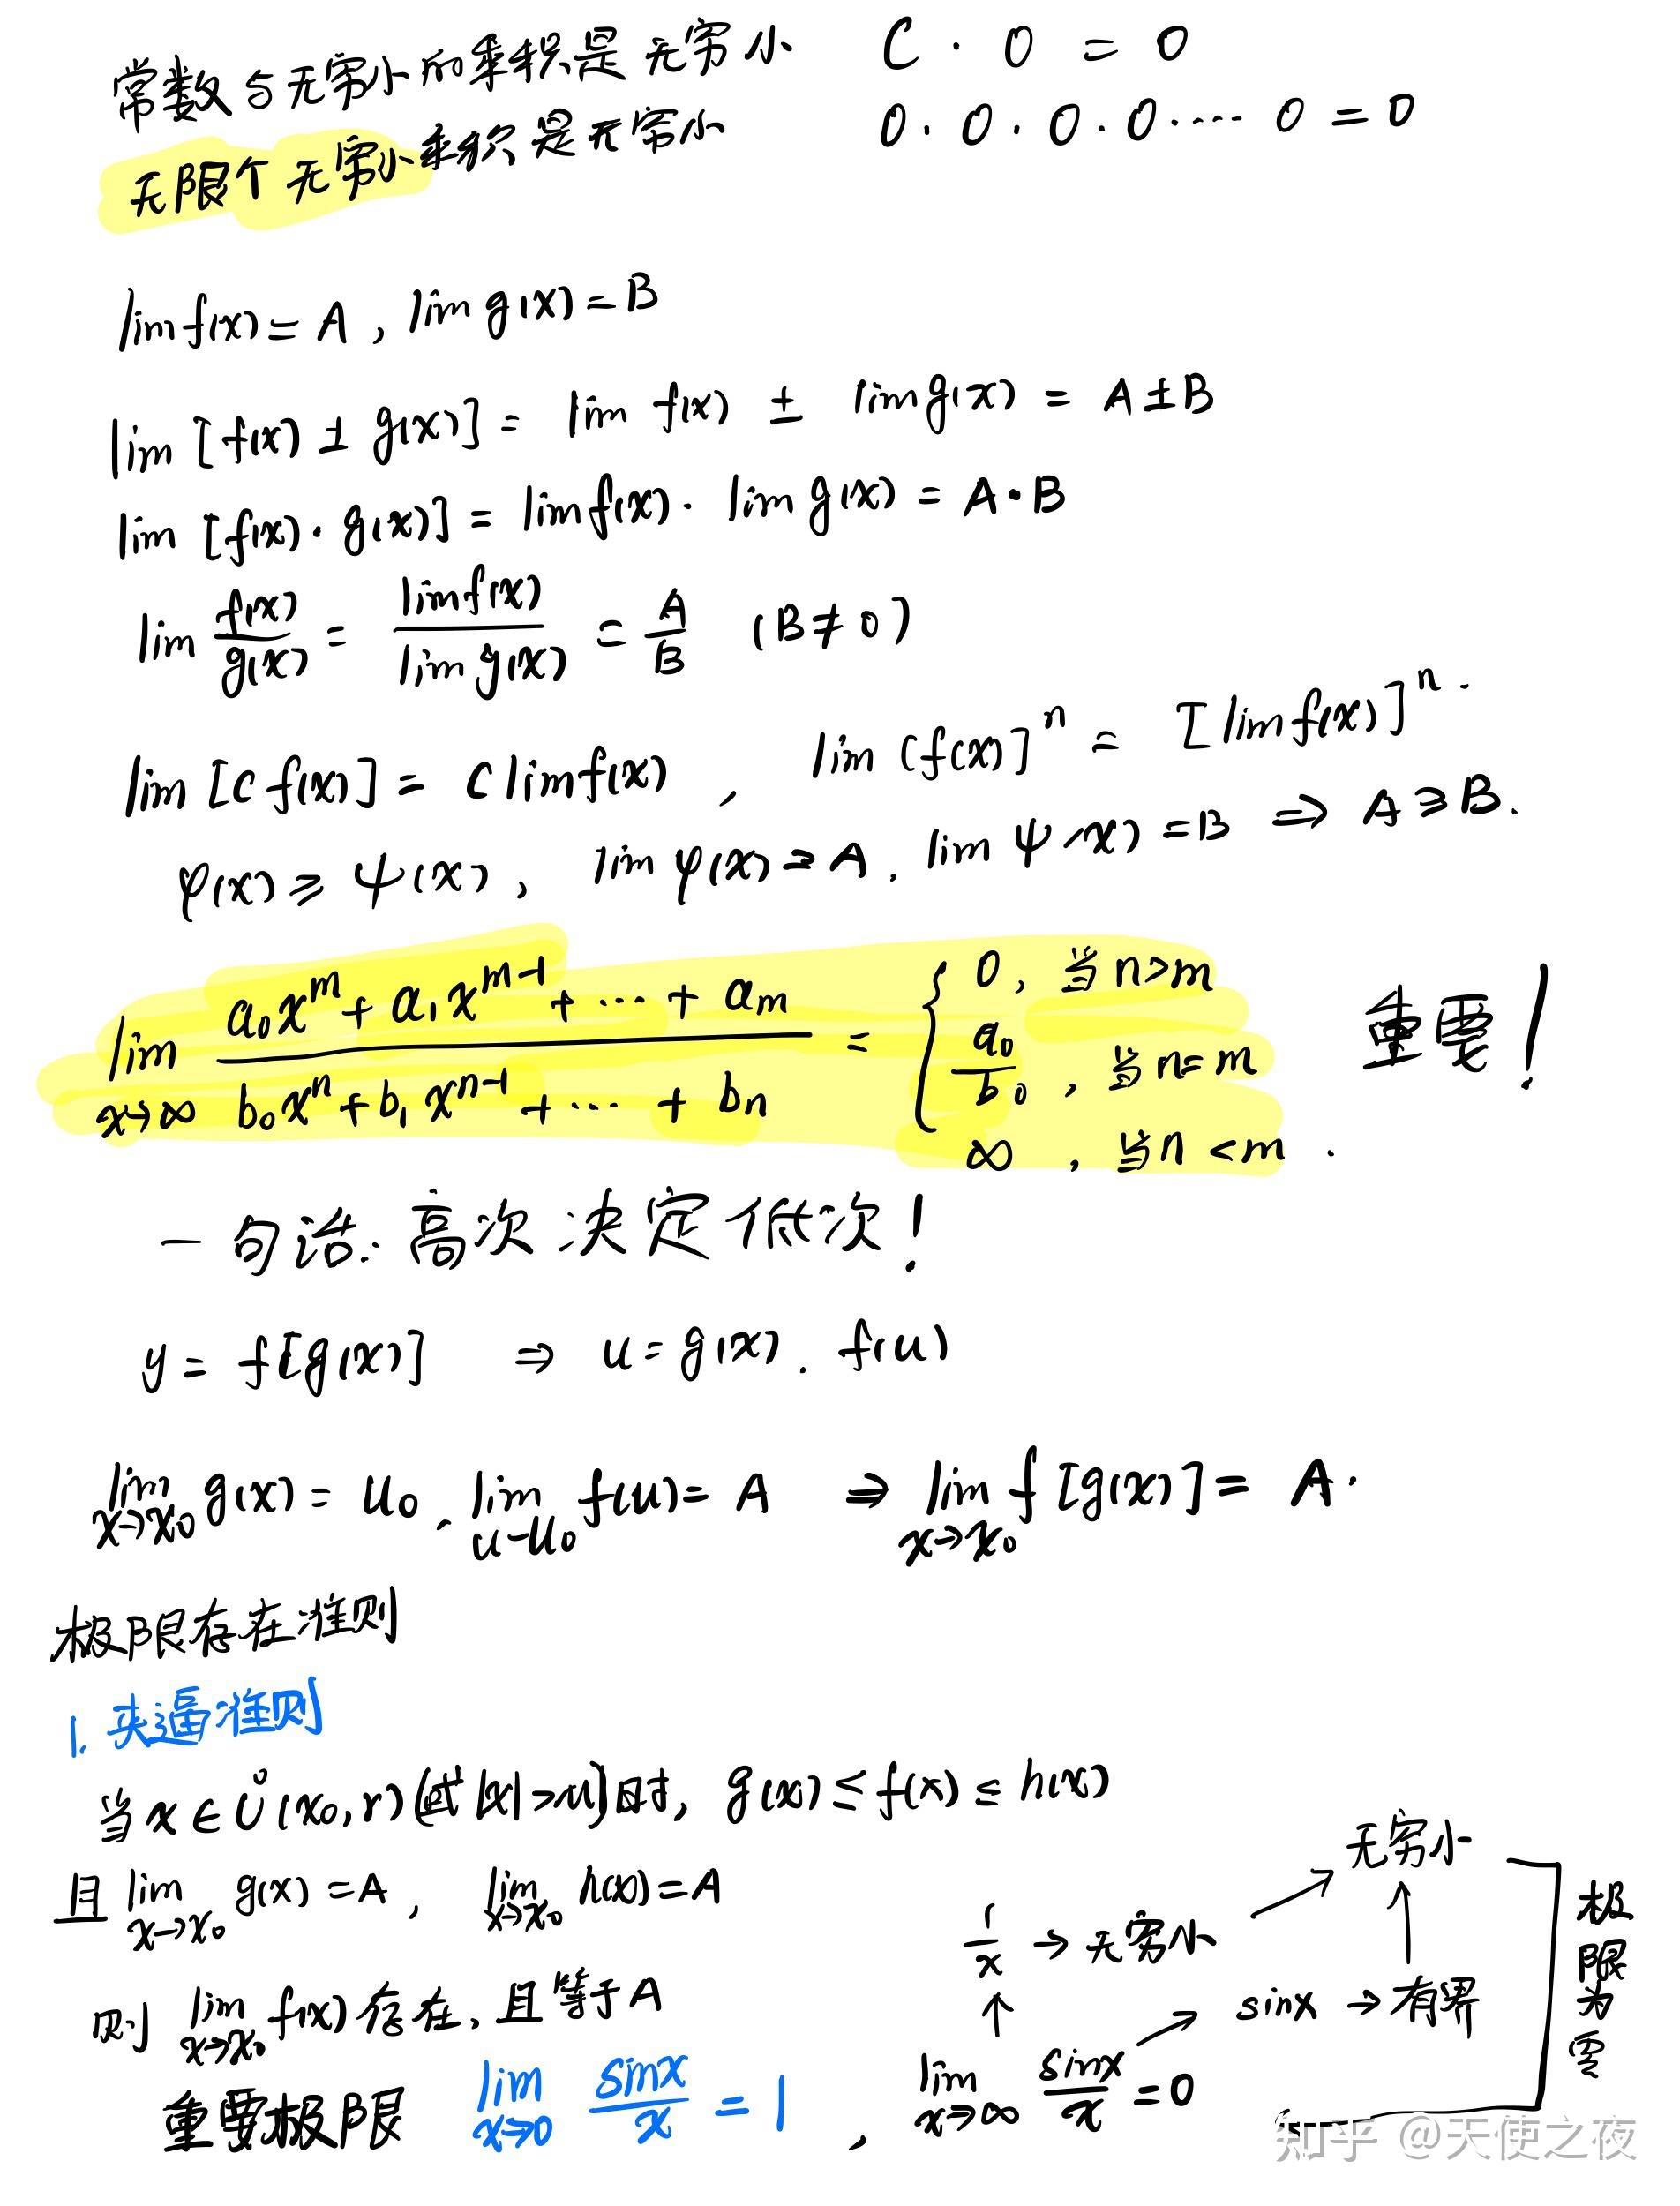 常数与无穷小的乘积是无穷小 C · 0 = 0
无限个无穷小乘积是无穷小 0 · 0 · 0 · 0 ···· 0 = 0
lim f(x) = A , lim g(x) = B
lim [f(x) ± g(x)] = lim f(x) ± lim g(x) = A ± B
lim [f(x) · g(x)] = lim f(x) · lim g(x) = A · B
lim f(x)/g(x) = lim f(x)/lim g(x) = A/B (B ≠ 0)
lim [C f(x)] = C lim f(x) , lim [f(x)]^n = [lim f(x)]^n .
φ(x) ≥ ψ(x) , lim φ(x) = A . lim ψ(x) = B ⇒ A ≥ B .
lim x→∞ (a₀x^m + a₁x^(m-1) + ··· + a_m)/(b₀x^n + b₁x^(n-1) + ··· + b_n) = { 0 , 当 n>m
a₀/b₀ , 当 n=m 重要!
∞ , 当 n<m .
一句话: 高次决定低次!
y = f[g(x)] ⇒ u = g(x) . f(u)
lim x→x₀ g(x) = u₀ . lim u-u₀ f(u) = A ⇒ lim x→x₀ f[g(x)] = A .
极限存在准则
1. 夹逼准则
当 x ∈ Ů(x₀, r) (或 |x| > M) 时, g(x) ≤ f(x) ≤ h(x)
且 lim x→x₀ g(x) = A , lim x→x₀ h(x) = A
则 lim x→x₀ f(x) 存在, 且等于 A
重要极限 lim x→0 sinx/x = 1 , lim x→∞ sinx/x = 0
1/x → 无穷小
sinx → 有界
无穷小
极限为零
知乎 @天使之夜